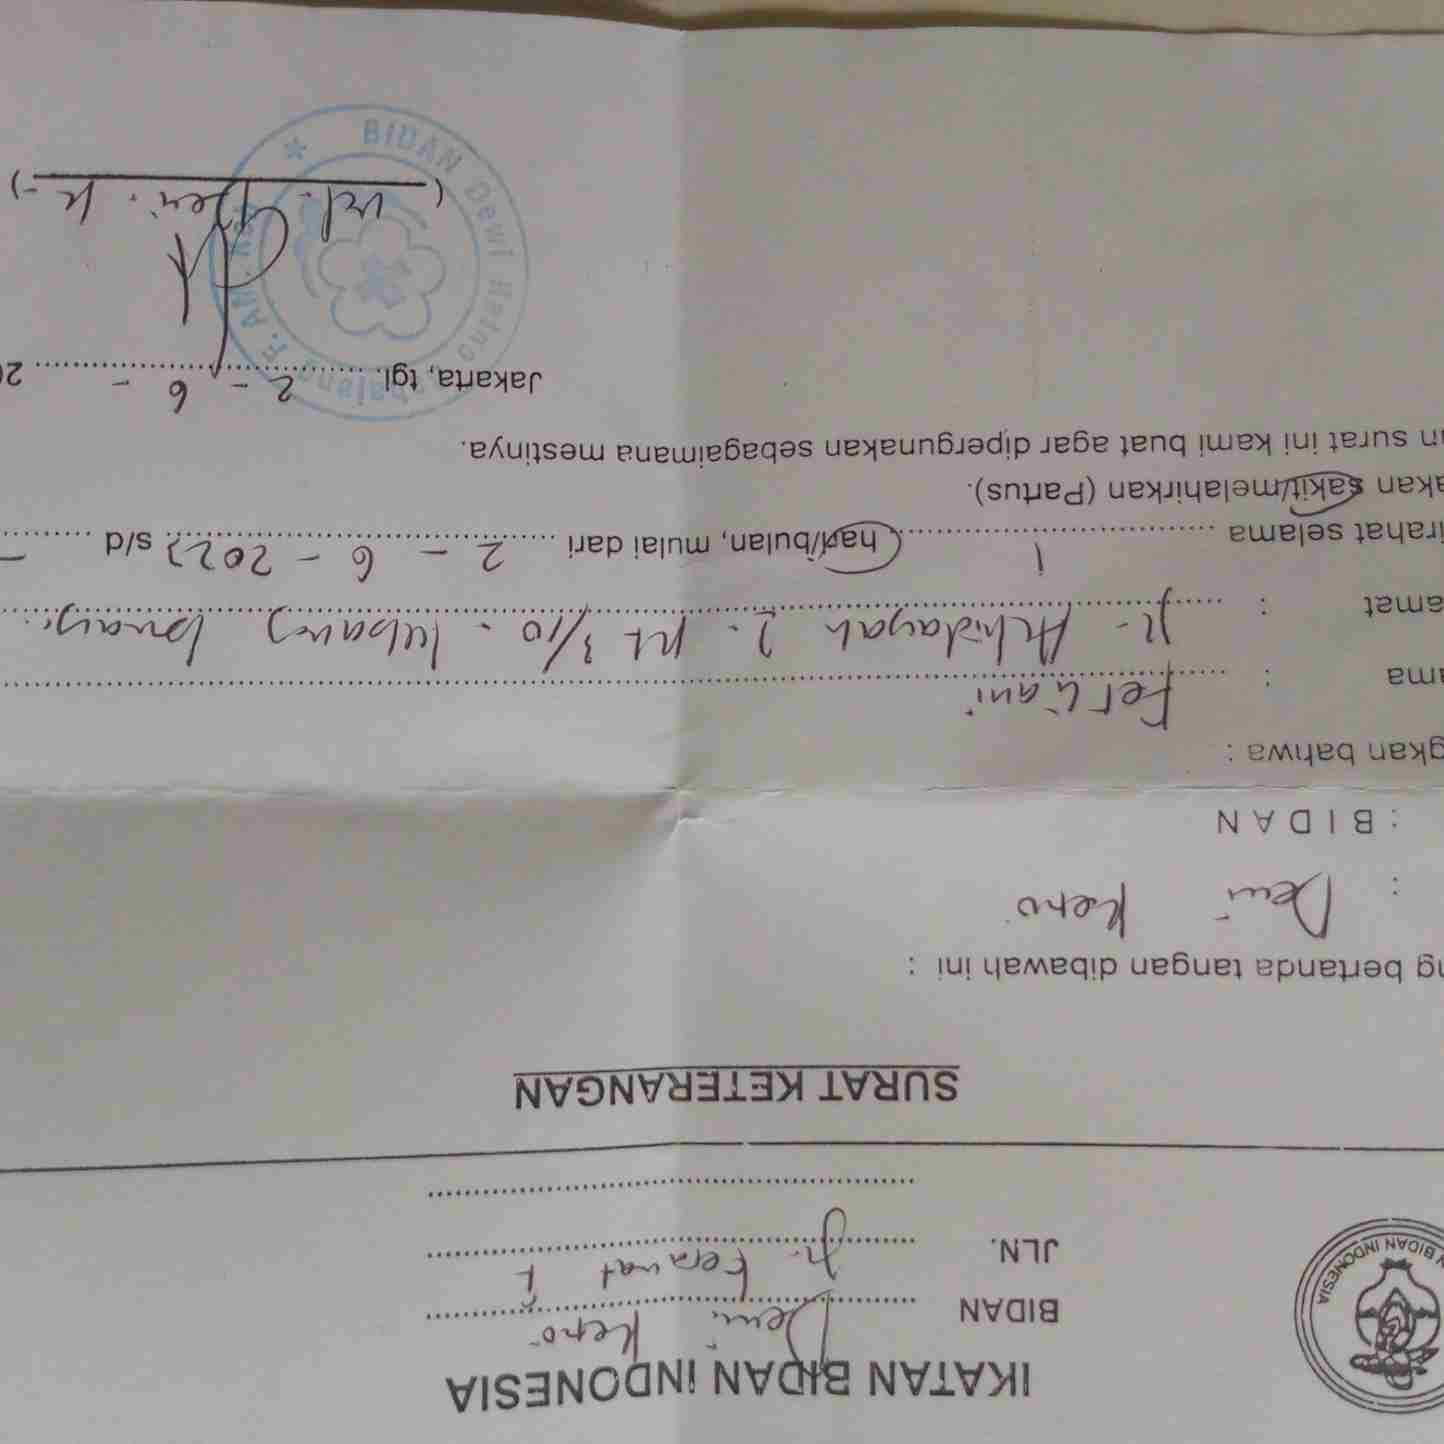 IKATAN BIDAN INDONESIA
BIDAN Dewi Retno
JLN. Jl. Keramat F
BIDAN INDONESIA
SURAT KETERANGAN
bertanda tangan dibawah ini :
: Dewi Retno
: BIDAN
gkan bahwa :
ama : Febriani
amat : Jl. Alhidayah 2. Rt 3/10.
irahat selama 1 hari/bulan, mulai dari 2 - 6 - 2023 s/d -
akan sakit/melahirkan (Partus).
n surat ini kami buat agar dipergunakan sebagaimana mestinya.
Jakarta, tgl. 2 - 6 - 20
BIDAN Dewi Retno